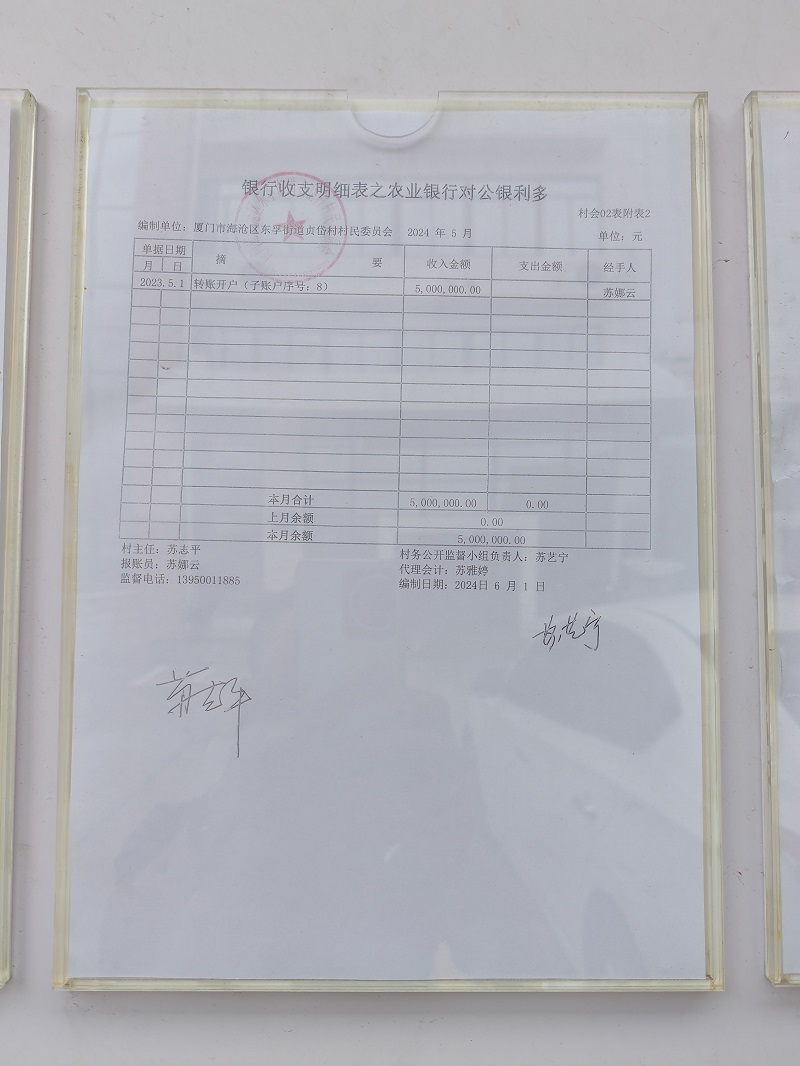 银行收支明细表之农业银行对公银利多
村会02表附表2
编制单位：厦门市海沧区东孚街道贞岱村村民委员会 2024 年 5 月 单位：元
单据日期 摘 要 收入金额 支出金额 经手人
月 日
2023.5.1 转账开户（子账户序号：8） 5,000,000.00 苏娜云
本月合计 5,000,000.00 0.00
上月余额 0.00
本月余额 5,000,000.00
村主任：苏志平 村务公开监督小组负责人：苏艺宁
报账员：苏娜云 代理会计：苏雅婷
监督电话：13950011885 编制日期：2024日 6 月 1 日
苏艺宁
苏志平